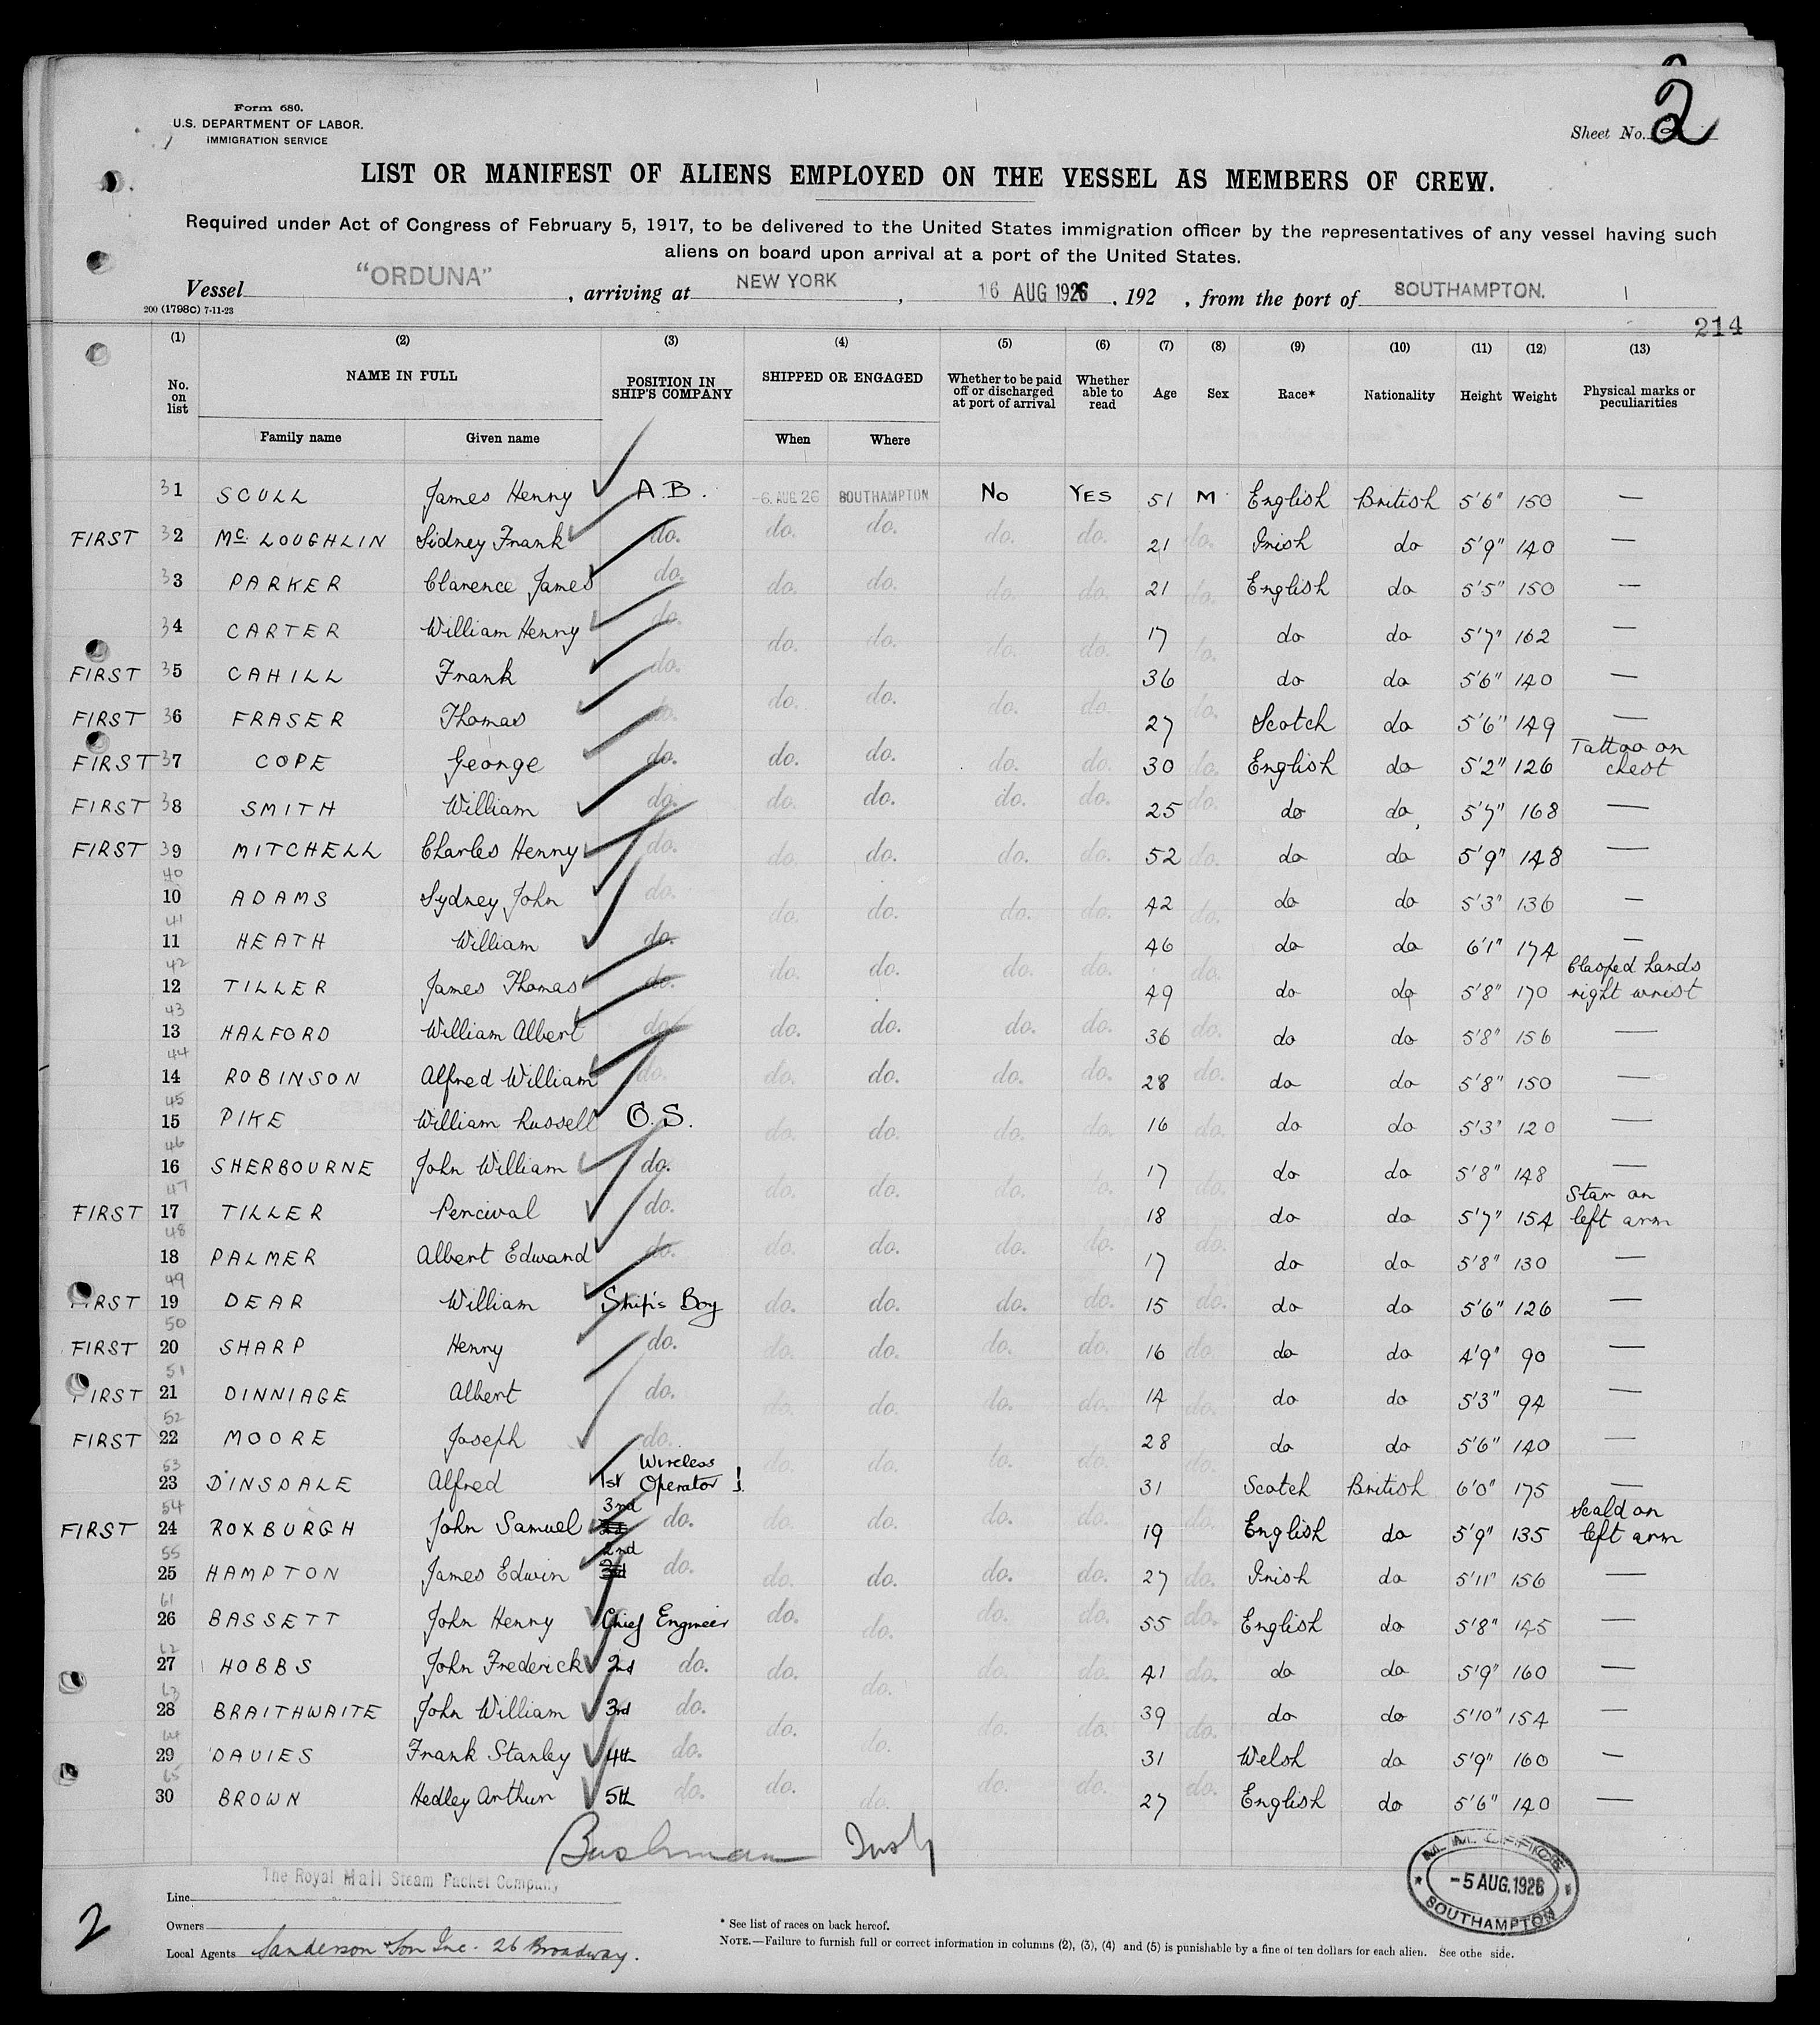 Form 680.
U.S. DEPARTMENT OF LABOR.
IMMIGRATION SERVICE
Sheet No. 2
LIST OR MANIFEST OF ALIENS EMPLOYED ON THE VESSEL AS MEMBERS OF CREW.
Required under Act of Congress of February 5, 1917, to be delivered to the United States immigration officer by the representatives of any vessel having such
aliens on board upon arrival at a port of the United States.
Vessel "ORDUNA", arriving at NEW YORK, 16 AUG 1926, 192 , from the port of SOUTHAMPTON.
200 (1798C) 7-11-23
214
(1) (2) (3) (4) (5) (6) (7) (8) (9) (10) (11) (12) (13)
No. on list NAME IN FULL POSITION IN SHIP'S COMPANY SHIPPED OR ENGAGED Whether to be paid off or discharged at port of arrival Whether able to read Age Sex Race* Nationality Height Weight Physical marks or peculiarities
Family name Given name When Where
31 SCULL James Henry A.B. -6. AUG. 26 SOUTHAMPTON No YES 51 M English British 5'6" 150 —
FIRST 32 Mc LOUGHLIN Sidney Frank do. do. do. do. do. 21 do. Irish do 5'9" 140 —
33 PARKER Clarence James do. do. do. do. do. 21 do. English do 5'5" 150 —
34 CARTER William Henry do. do. do. do. do. 17 do. do do 5'7" 162 —
FIRST 35 CAHILL Frank do. 36 do do 5'6" 140 —
FIRST 36 FRASER Thomas do. do. do. do. do. 27 do. Scotch do 5'6" 149 —
FIRST 37 COPE George do. do. do. do. do. 30 do. English do 5'2" 126 Tattoo on chest
FIRST 38 SMITH William do. do. do. do. do. 25 do. do do 5'7" 168 —
FIRST 39 MITCHELL Charles Henry do. do. do. do. do. 52 do. do do 5'9" 148 —
40
10 ADAMS Sydney John do. do. do. do. do. 42 do. do do 5'3" 136 —
41
11 HEATH William do. 46 do do 6'1" 174 —
42
12 TILLER James Thomas do. do. do. do. do. 49 do. do do 5'8" 170 Clasped hands right wrist
43
13 HALFORD William Albert do. do. do. do. do. 36 do. do do 5'8" 156 —
44
14 ROBINSON Alfred William do. do. do. do. do. 28 do. do do 5'8" 150 —
45
15 PIKE William Russell O.S. do. do. do. do. 16 do. do do 5'3" 120 —
46
16 SHERBOURNE John William do. do. do. do. do. 17 do. do do 5'8" 148 —
47
FIRST 17 TILLER Percival do. 18 do do 5'7" 154 Star on left arm
48
18 PALMER Albert Edward do. do. do. do. do. 17 do. do do 5'8" 130 —
49
FIRST 19 DEAR William Ship's Boy do. do. do. do. 15 do. do do 5'6" 126 —
50
FIRST 20 SHARP Henry do. do. do. do. do. 16 do. do do 4'9" 90 —
51
FIRST 21 DINNIAGE Albert do. do. do. do. do. 14 do. do do 5'3" 94 —
52
FIRST 22 MOORE Joseph do. 28 do do 5'6" 140 —
53
23 DINSDALE Alfred 1st Wireless Operator do. do. do. do. 31 do. Scotch British 6'0" 175 —
54
FIRST 24 ROXBURGH John Samuel 3rd do. do. do. do. do. 19 do. English do 5'9" 135 Scald on left arm
55
25 HAMPTON James Edwin 2nd 3rd do. do. do. do. do. 27 do. Irish do 5'11" 156 —
61
26 BASSETT John Henry Chief Engineer do. do. do. do. 55 do. English do 5'8" 145 —
62
27 HOBBS John Frederick 2nd do. do. do. do. do. 41 do. do do 5'9" 160 —
63
28 BRAITHWAITE John William 3rd do. do. do. do. do. 39 do. do do 5'10" 154 —
64
29 DAVIES Frank Stanley 4th do. 31 Welsh do 5'9" 160 —
65
30 BROWN Hedley Arthur 5th do. do. do. do. do. 27 do. English do 5'6" 140 —
Bushman
M. M. OFFICE
-5 AUG. 1926
SOUTHAMPTON
Line The Royal Mail Steam Packet Company
2
Owners
Local Agents Sanderson & Son Inc. 26 Broadway.
* See list of races on back hereof.
NOTE.—Failure to furnish full or correct information in columns (2), (3), (4) and (5) is punishable by a fine of ten dollars for each alien. See othe side.